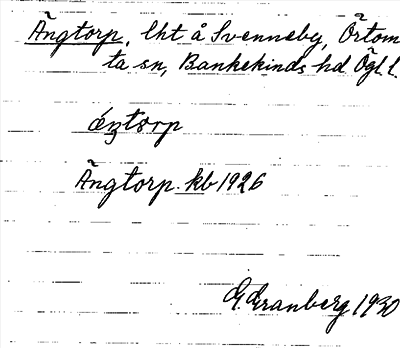 Ängtorp, lht å Svenneby, Örtom
ta sn, Bankekinds hd Ögl. l.
ä́ŋtorp
Ängtorp. kb 1926
G. Granberg 1930